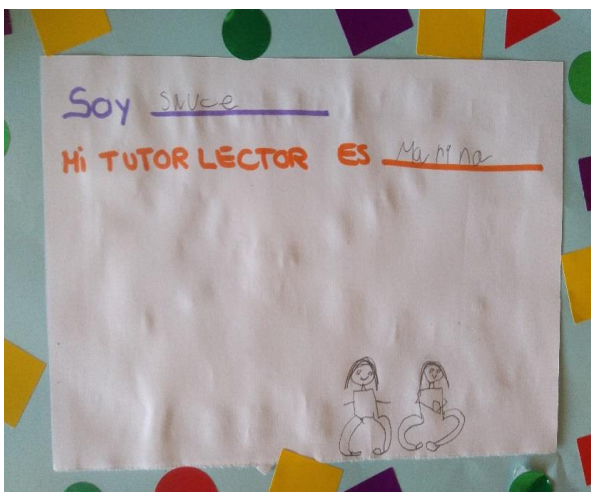 Soy sauce
Mi TUTOR LECTOR ES Marina